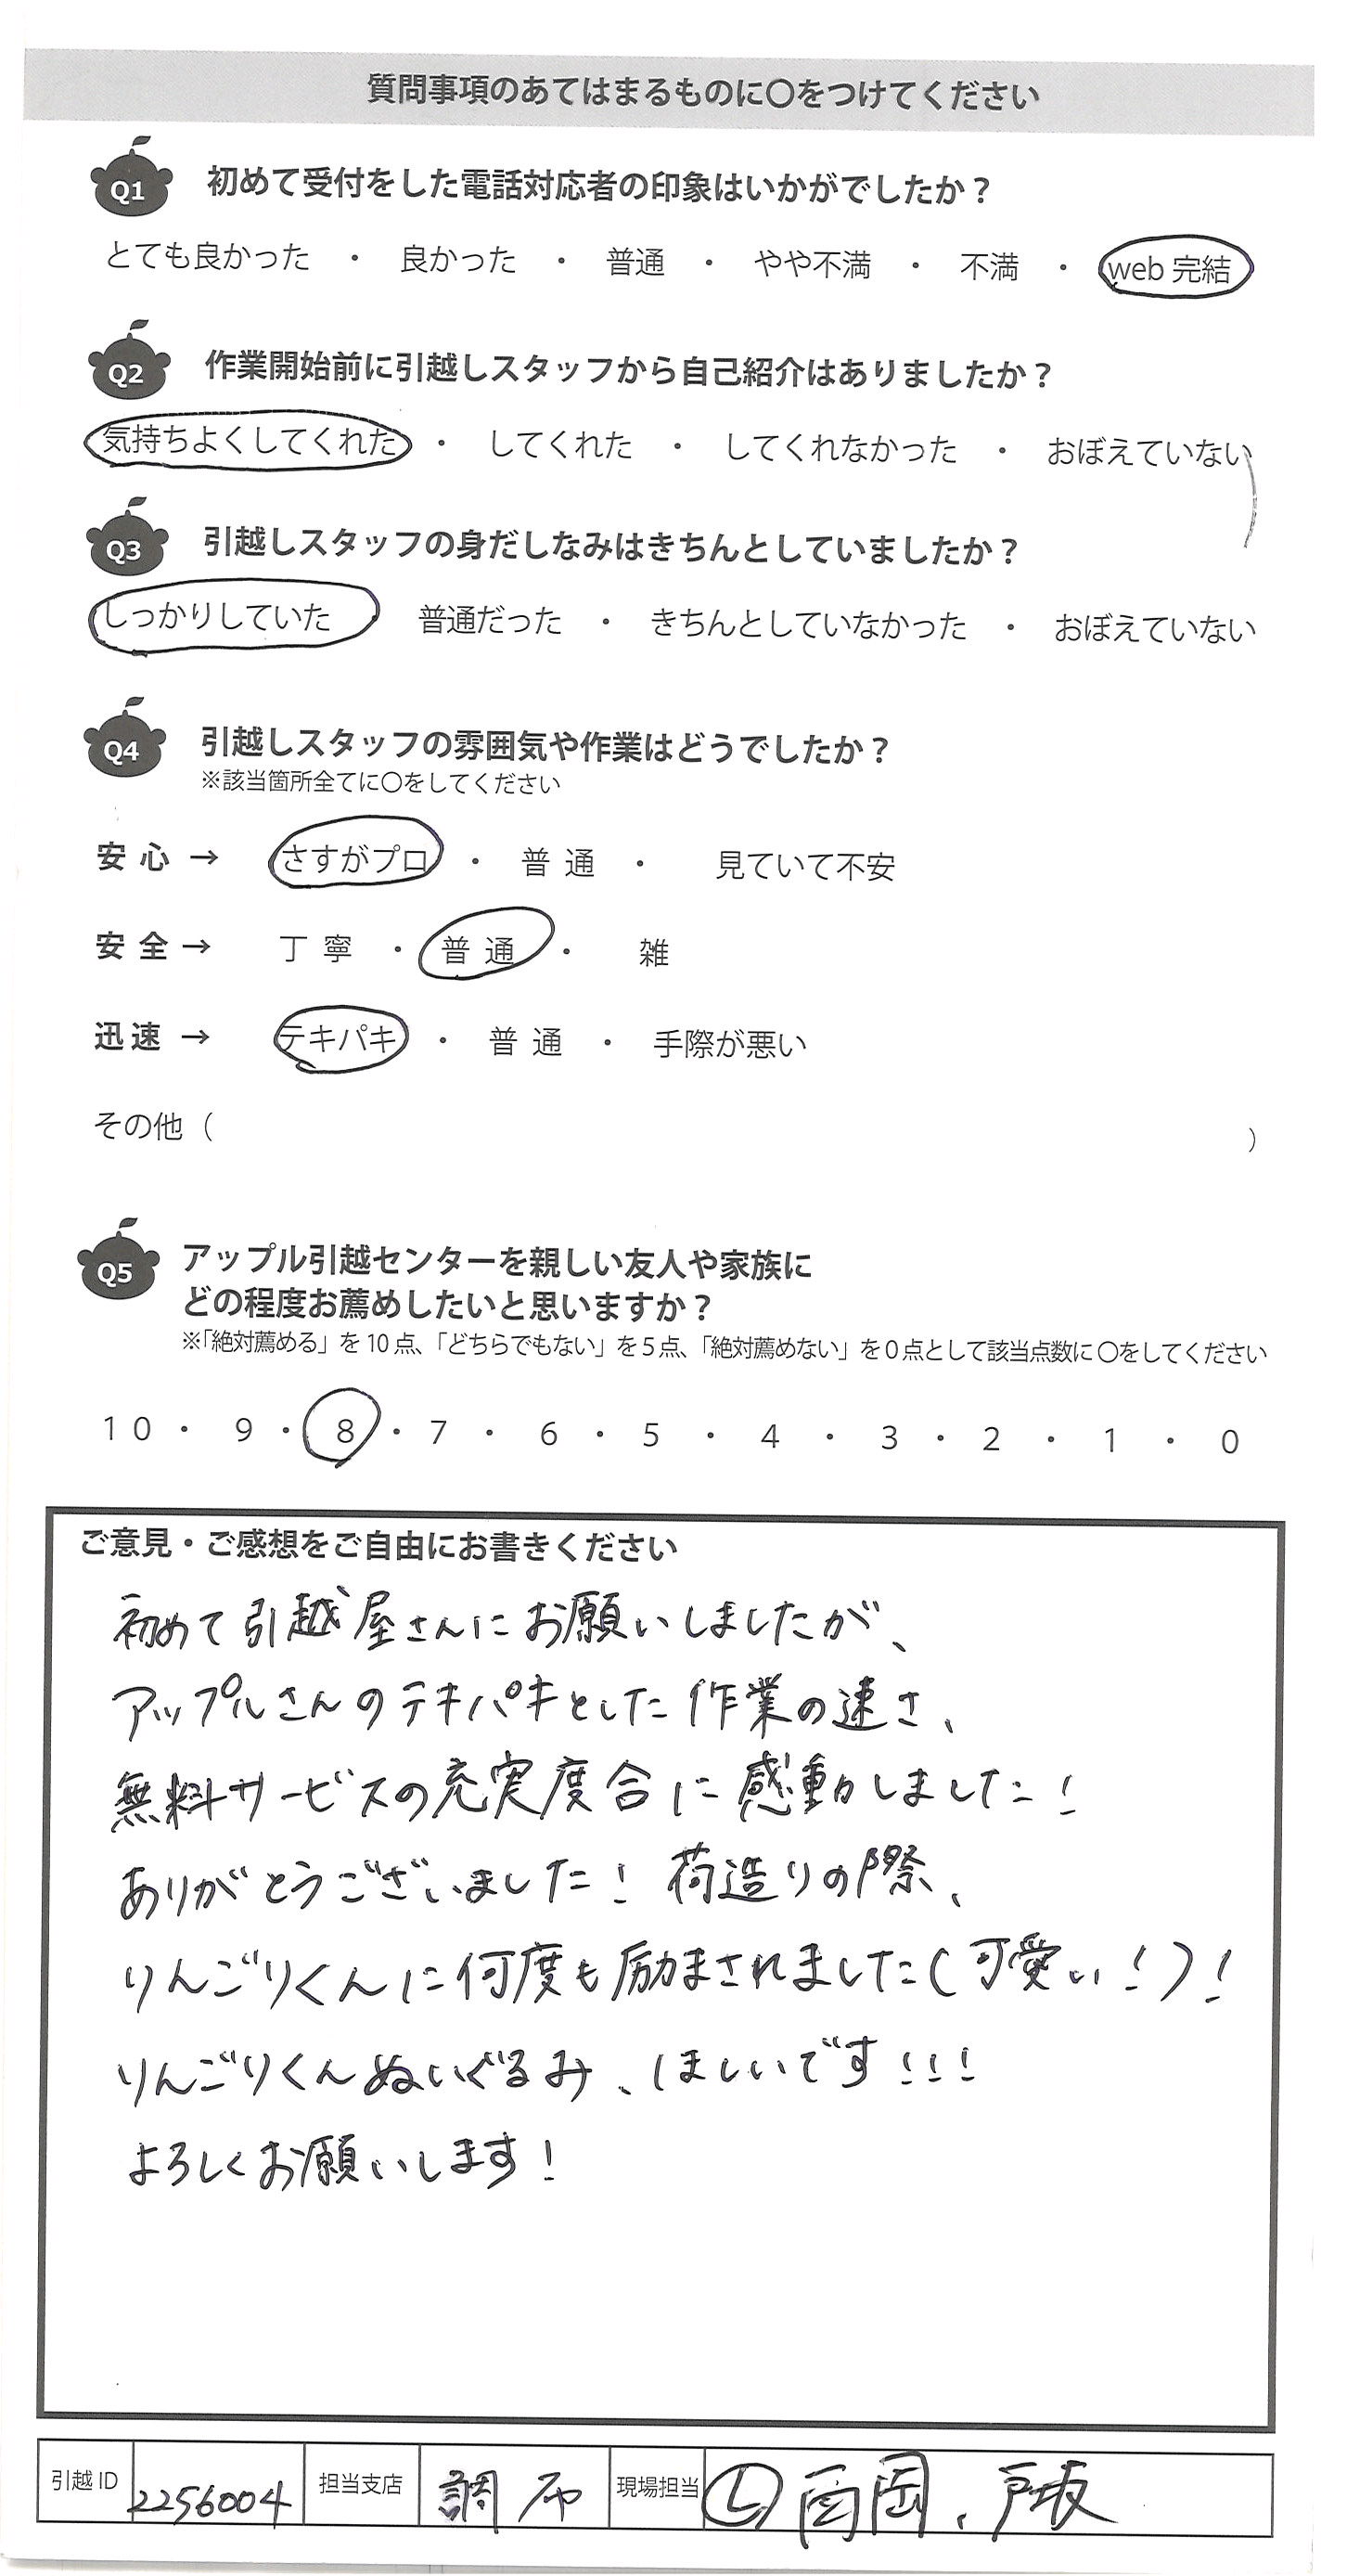 質問事項のあてはまるものに〇をつけてください
Q1 初めて受付をした電話対応者の印象はいかがでしたか？
とても良かった ・ 良かった ・ 普通 ・ やや不満 ・ 不満 ・ web 完結
Q2 作業開始前に引越しスタッフから自己紹介はありましたか？
気持ちよくしてくれた ・ してくれた ・ してくれなかった ・ おぼえていない
Q3 引越しスタッフの身だしなみはきちんとしていましたか？
しっかりしていた 普通だった ・ きちんとしていなかった ・ おぼえていない
Q4 引越しスタッフの雰囲気や作業はどうでしたか？
※該当箇所全てに〇をしてください
安心 → さすがプロ ・ 普通 ・ 見ていて不安
安全 → 丁寧 ・ 普通 ・ 雑
迅速 → テキパキ ・ 普通 ・ 手際が悪い
その他（ ）
Q5 アップル引越センターを親しい友人や家族に
どの程度お薦めしたいと思いますか？
※「絶対薦める」を10点、「どちらでもない」を5点、「絶対薦めない」を0点として該当点数に〇をしてください
10 ・ 9 ・ 8 ・ 7 ・ 6 ・ 5 ・ 4 ・ 3 ・ 2 ・ 1 ・ 0
ご意見・ご感想をご自由にお書きください
初めて引越屋さんにお願いしましたが、
アップルさんのテキパキとした作業の速さ、
無料サービスの充実度合に感動しました！
ありがとうございました！荷造りの際、
りんごりくんに何度も励まされました（可愛い！）！
りんごりくんぬいぐるみ、ほしいです！！！
よろしくお願いします！
引越ID 2256004 担当支店 調布 現場担当 Ⓛ西岡、戸坂